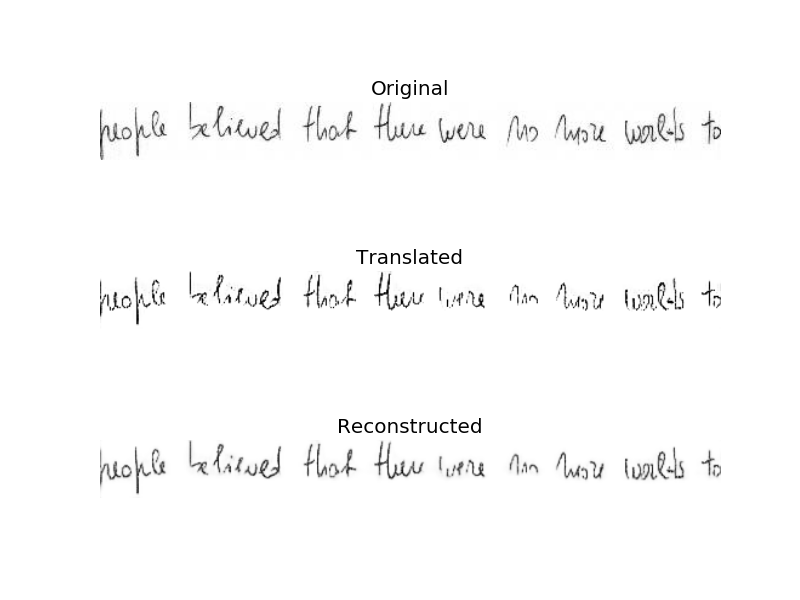 Original
people believed that there were no more worlds to
Translated
people believed that there were no more worlds to
Reconstructed
people believed that there were no more worlds to